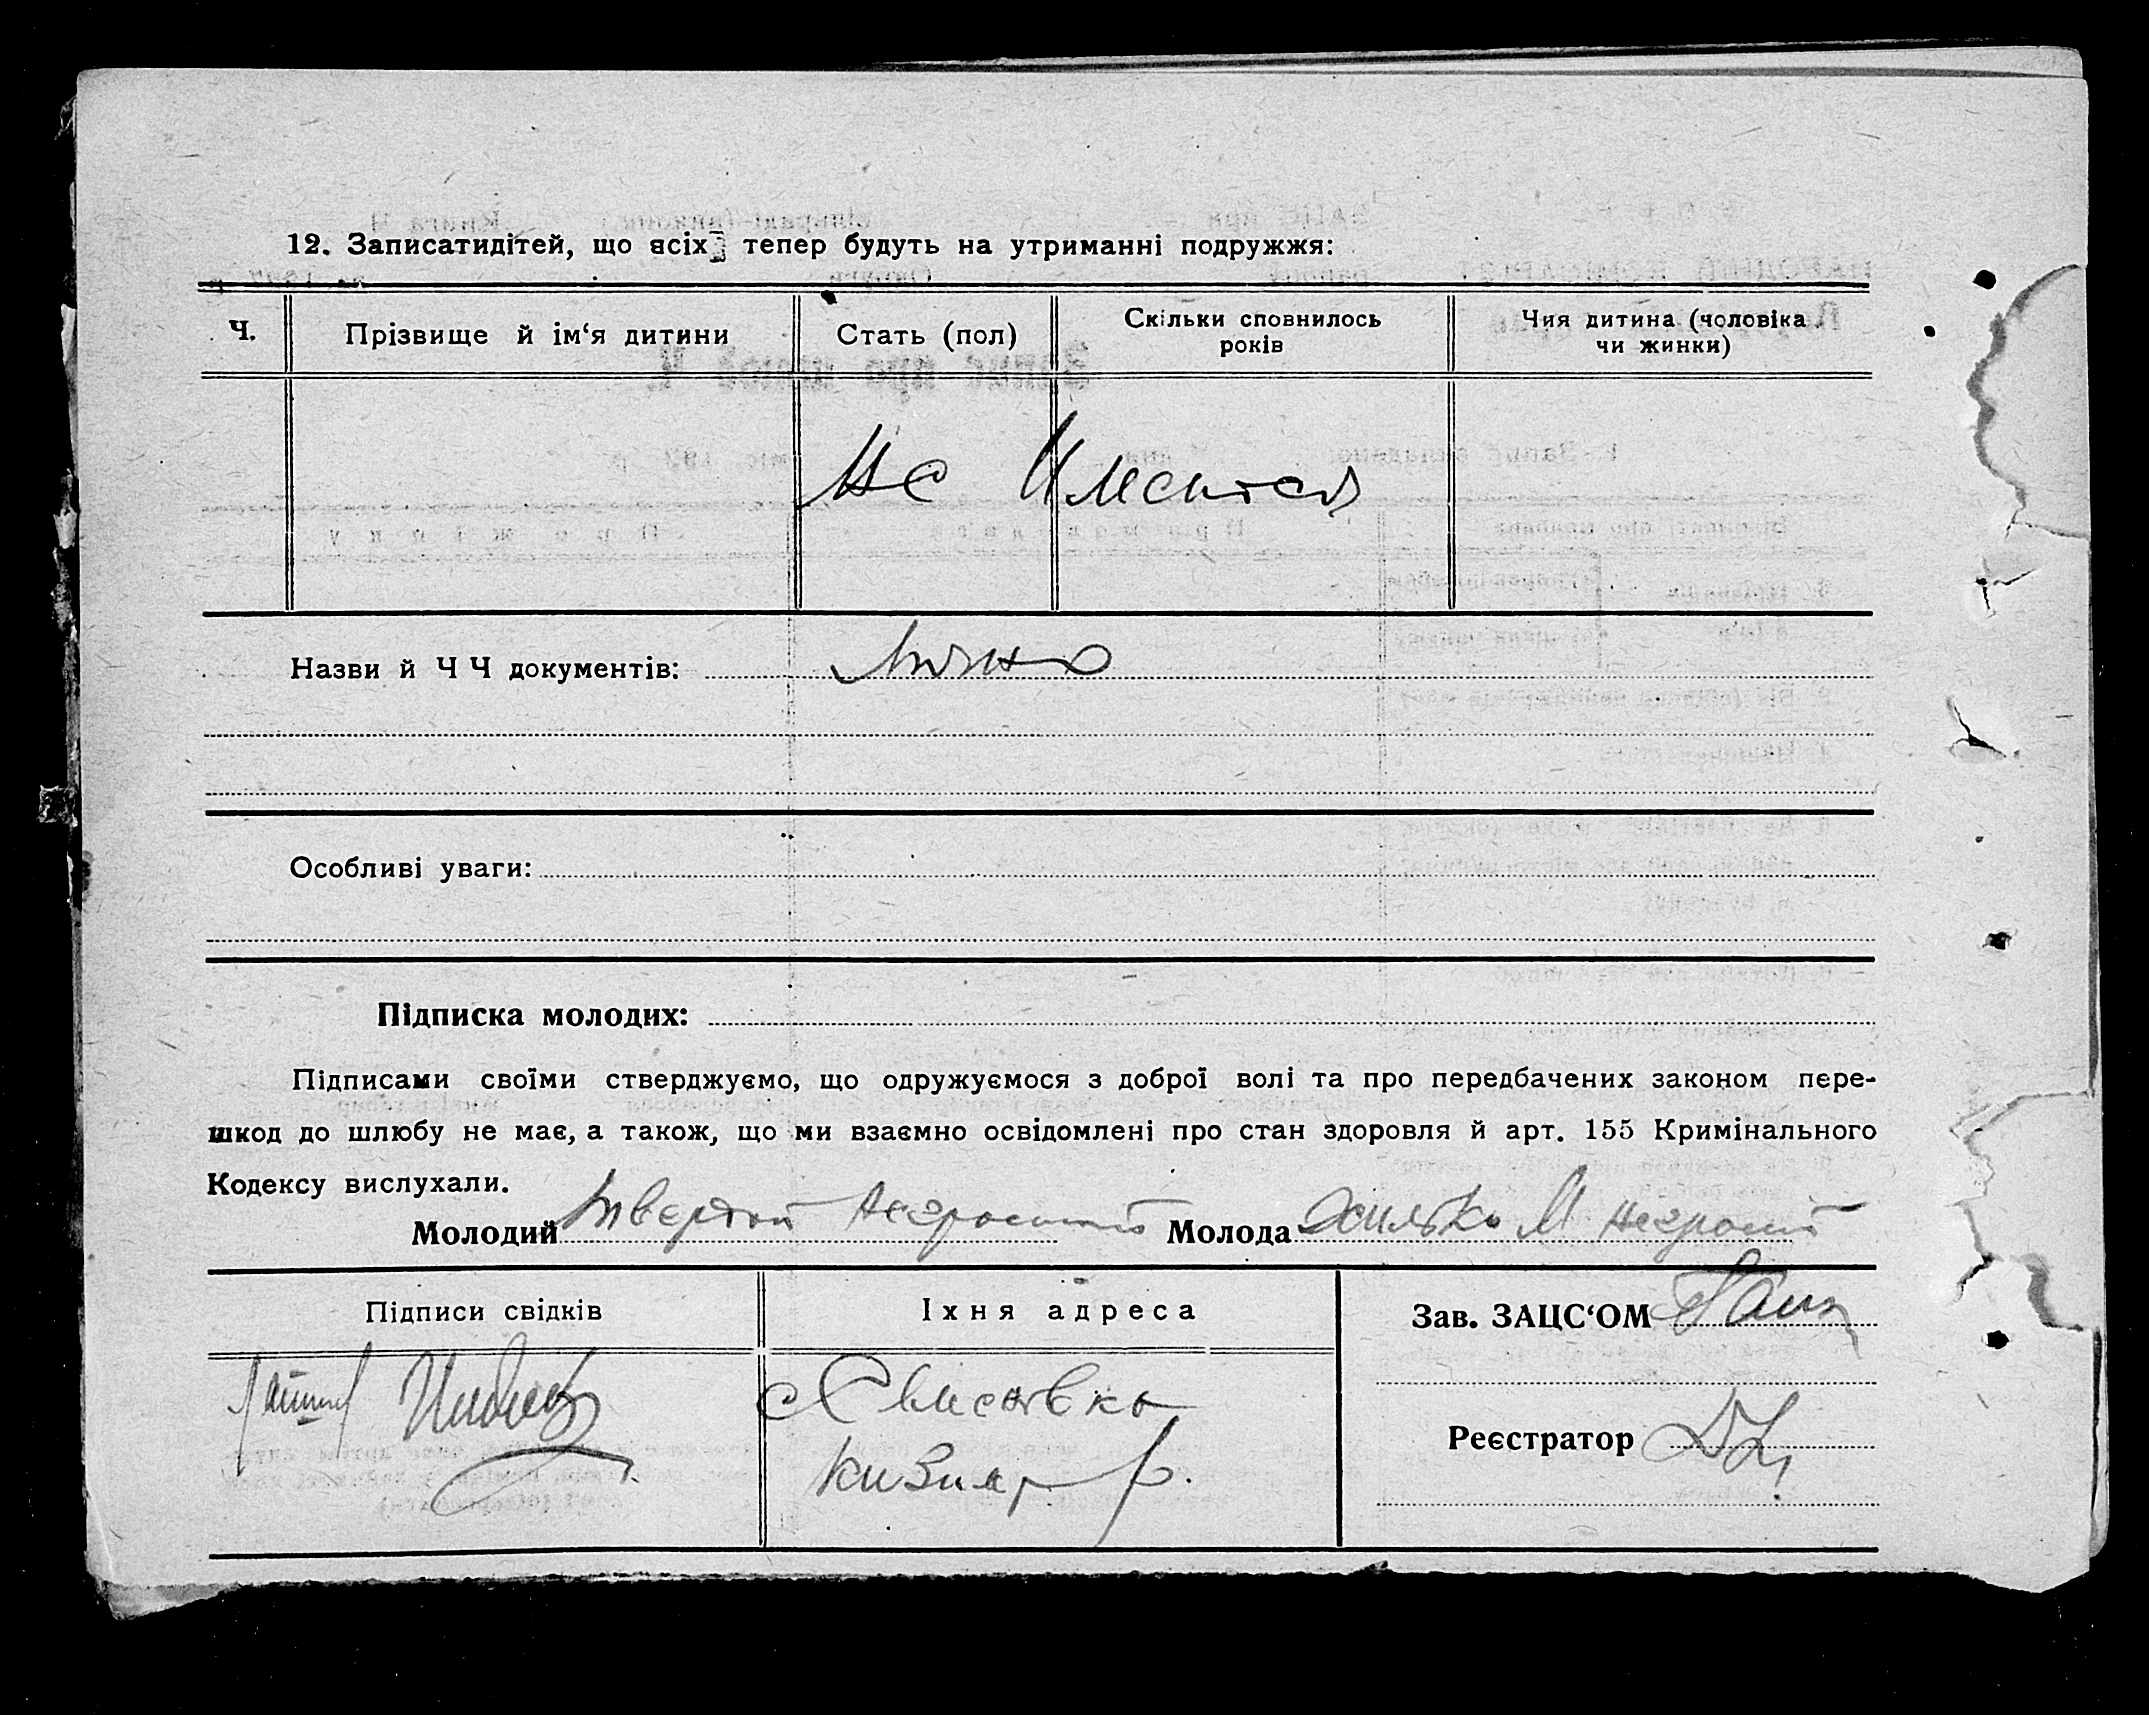 12. Записатидітей, що всіх тепер будуть на утриманні подружжя:
Ч.
Прізвище й ім‘я дитини
Стать (пол)
Скільки сповнилось
років
Чия дитина (чоловіка
чи жинки)
Не Имеется
Назви й Ч Ч документів:
Особливі уваги:
Підписка молодих:
Підписами своїми стверджуємо, що одружуємося з доброї волі та про передбачених законом пере-
шкод до шлюбу не має, а також, що ми взаємно освідомлені про стан здоровля й арт. 155 Кримінального
Кодексу вислухали.
Молодий Твердой Молода М
Підписи свідків
Їхня адреса
Зав. ЗАЦС‘ОМ
Реєстратор